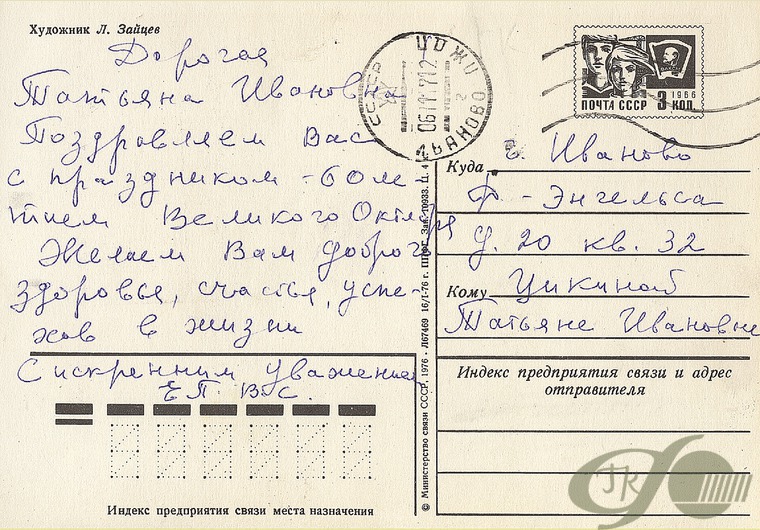 Художник Л. Зайцев
Дорогая
Татьяна Ивановна
Поздравляем Вас
с праздником - 60ле-
тием Великого Октября
Желаем Вам доброго
здоровья, счастья, успе-
хов в жизни
С искренним уважением
ЕП ВС.
СССР
ИВАНОВО
ПОЧТА СССР 3 КОП.
1966
Куда г. Иваново
Ф-Энгельса
д. 20 кв. 32
Кому Цикиной
Татьяне Ивановне
Индекс предприятия связи и адрес
отправителя
Индекс предприятия связи места назначения
© Министерство связи СССР, 1976. Л67469 16/I-76 г. Зак. 10933. Ц. 4
ГК